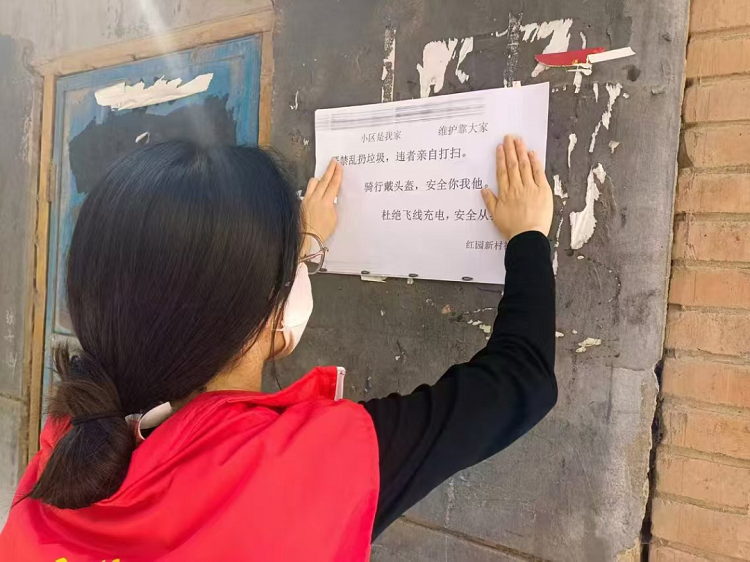 小区是我家 维护靠大家
禁乱扔垃圾，违者亲自打扫。
骑行戴头盔，安全你我他。
杜绝飞线充电，安全从
红园新村